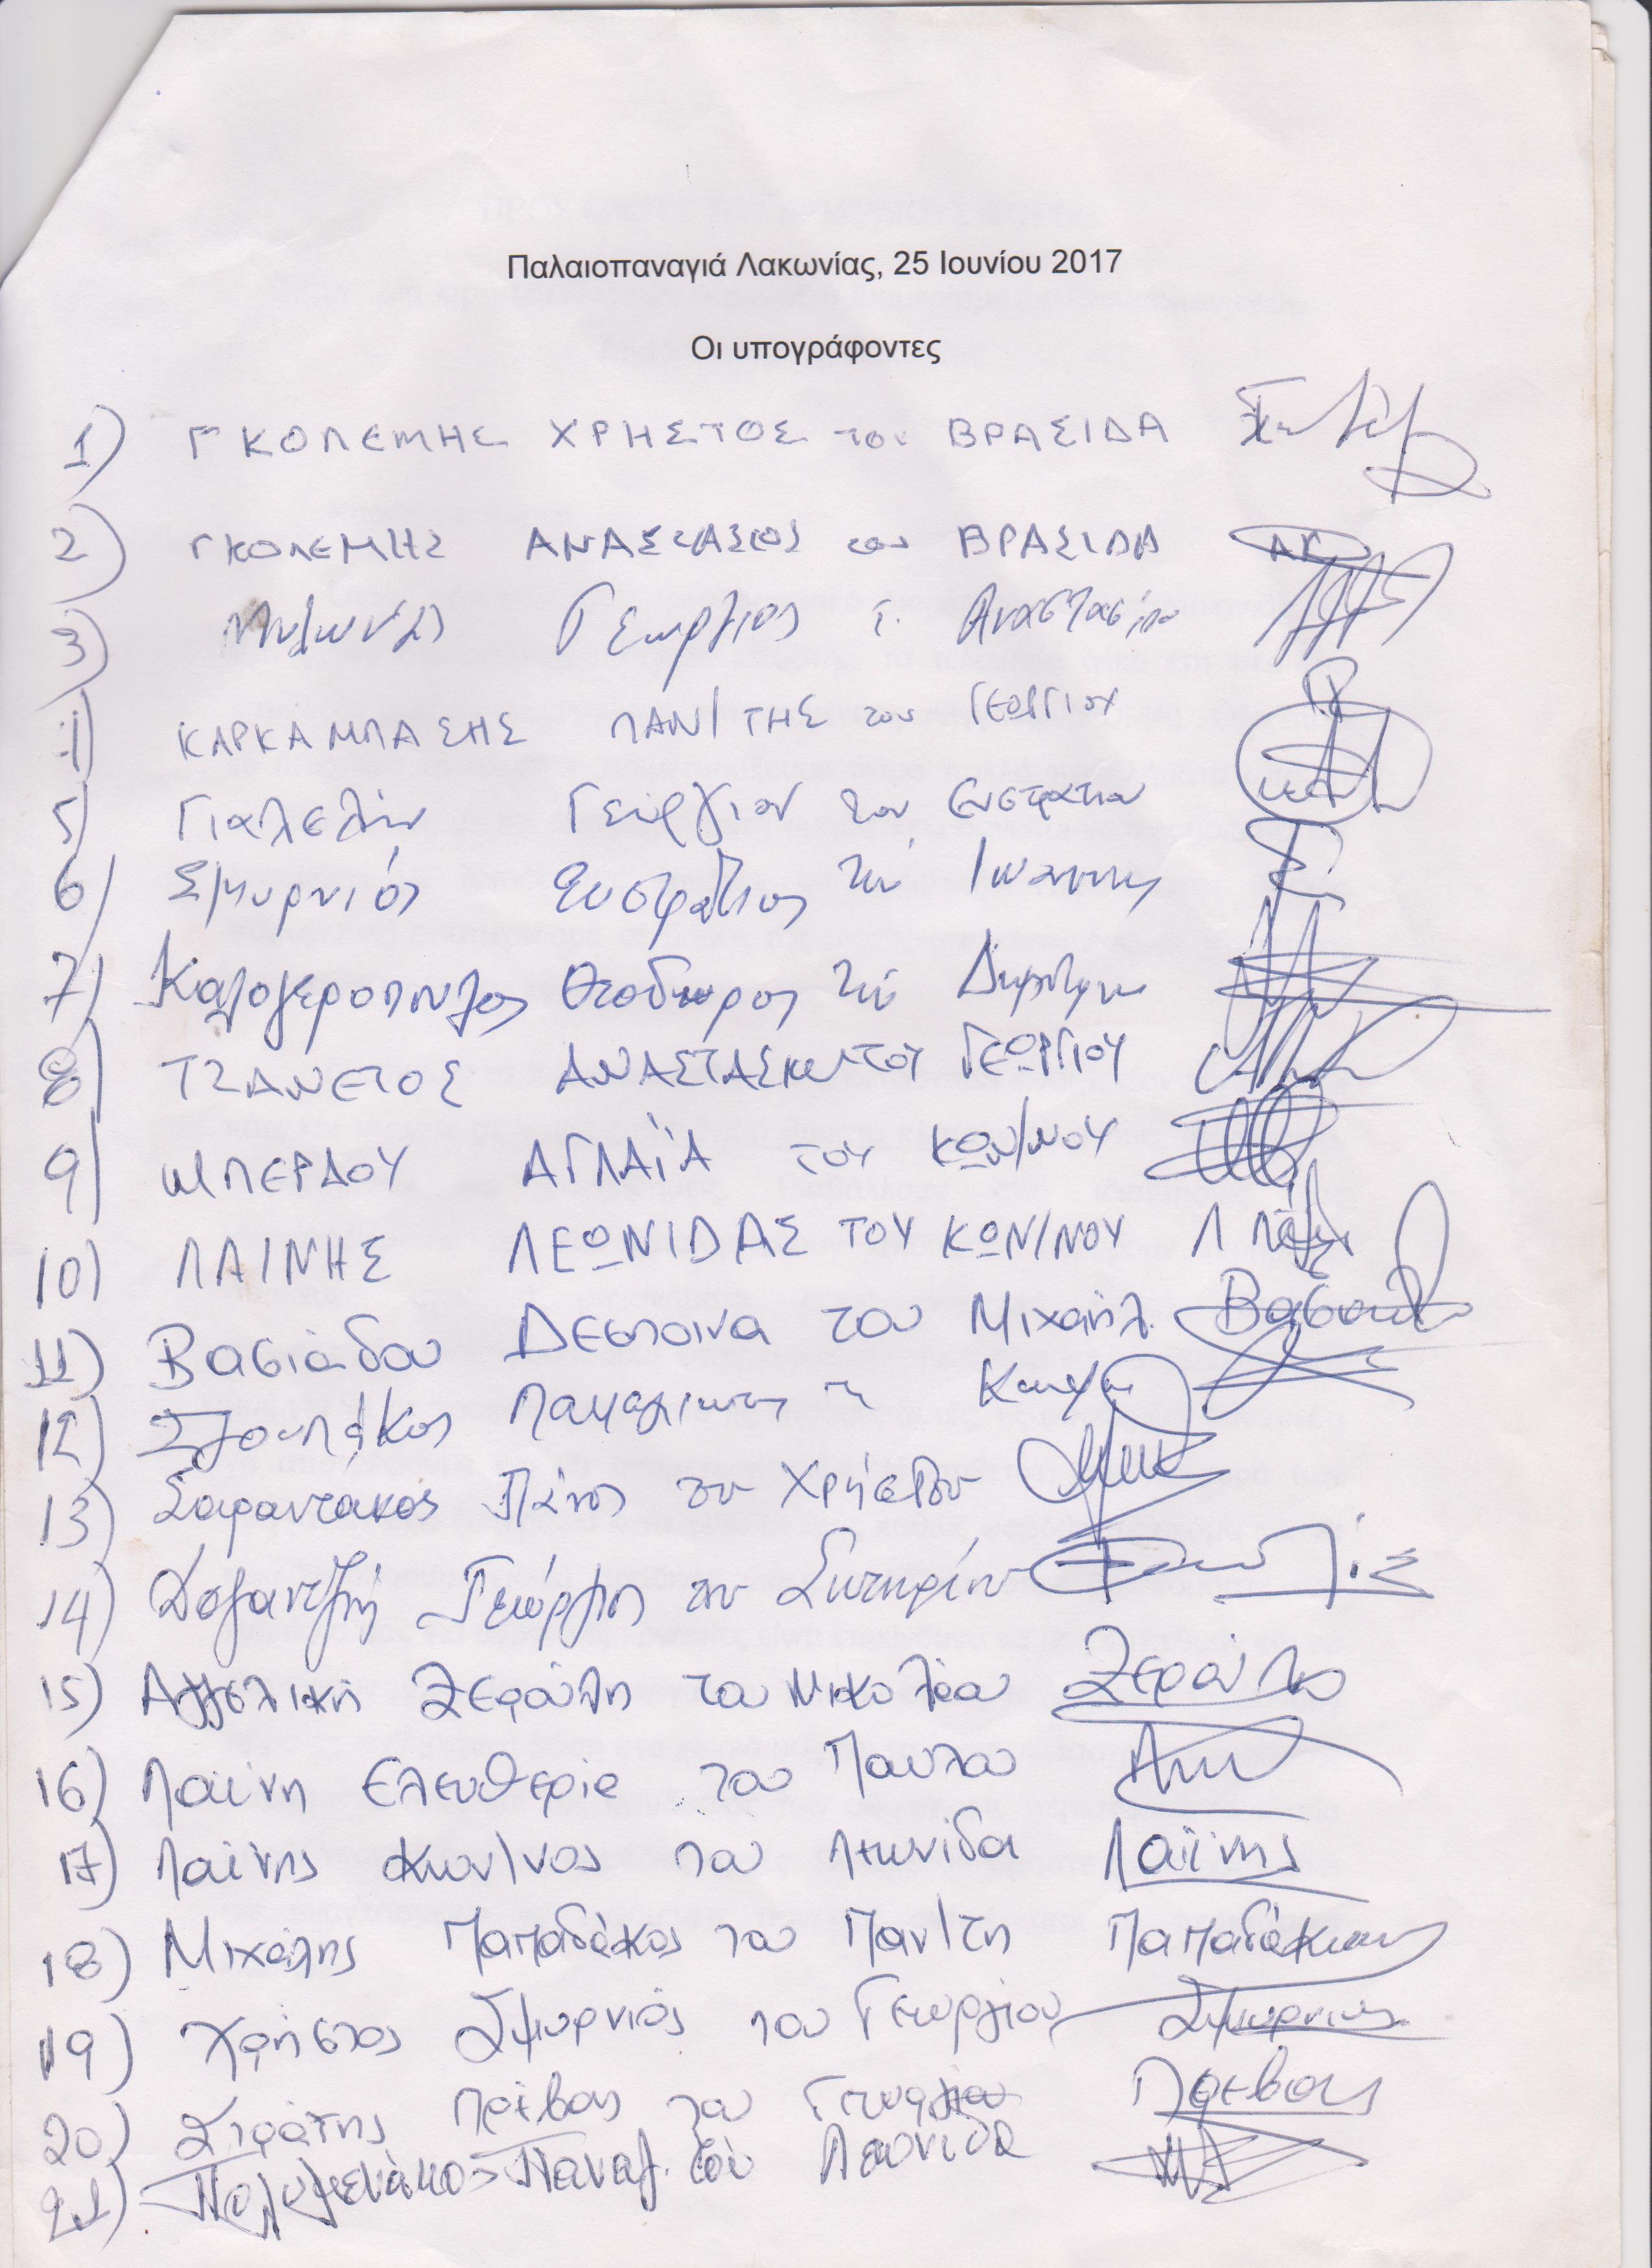 Παλαιοπαναγιά Λακωνίας, 25 Ιουνίου 2017
Οι υπογράφοντες
1) ΓΚΟΛΕΜΗΣ ΧΡΗΣΤΟΣ του ΒΡΑΣΙΔΑ
2) ΓΚΟΛΕΜΗΣ ΑΝΑΣΤΑΣΙΟΣ του ΒΡΑΣΙΔΑ ΑΓ
3) Γεώργιος τ. Αναστασίου
4) ΚΑΡΚΑΜΠΑΣΗΣ ΠΑΝ/ΤΗΣ του ΓΕΩΡΓΙΟΥ
5) Γιαλελής Γεώργιου του Ευστρατίου
6) Σμυρνιός Ευστράτιος του Ιωάννη
7) Καλογερόπουλος Θεόδωρος του Δημήτριου
8) ΤΖΑΝΕΤΟΣ ΑΝΑΣΤΑΣΙΟΣ ΤΟΥ ΓΕΩΡΓΙΟΥ
9) ΜΠΕΡΔΟΥ ΑΓΛΑΪΑ ΤΟΥ ΚΩΝ/ΝΟΥ
10) ΛΑΙΝΗΣ ΛΕΩΝΙΔΑΣ ΤΟΥ ΚΩΝ/ΝΟΥ
11) Βασιάδου Δέσποινα του Μιχαήλ
12) Στουπάκος Παναγιώτης
13) Σαραντάκος Πάνος του Χρήστου
14) Γεώργιος του Σωτηρίου
15) Αγγελική Ζερούλη του Νικολάου Ζερούλη
16) Λαΐνη Ελευθερία του Παύλου
17) Λαΐνης Κων/νος του Λεωνίδα Λαΐνης
18) Μιχάλης Παπαδάκος του Παν/τη Παπαδάκος
19) Χρήστος Σμυρνιός του Γεωργίου Σμυρνιός
20) Στράτης Πρέβας του Γεωργίου Πρέβας
21) Πολυμενάκος Παναγ. του Λεωνίδα